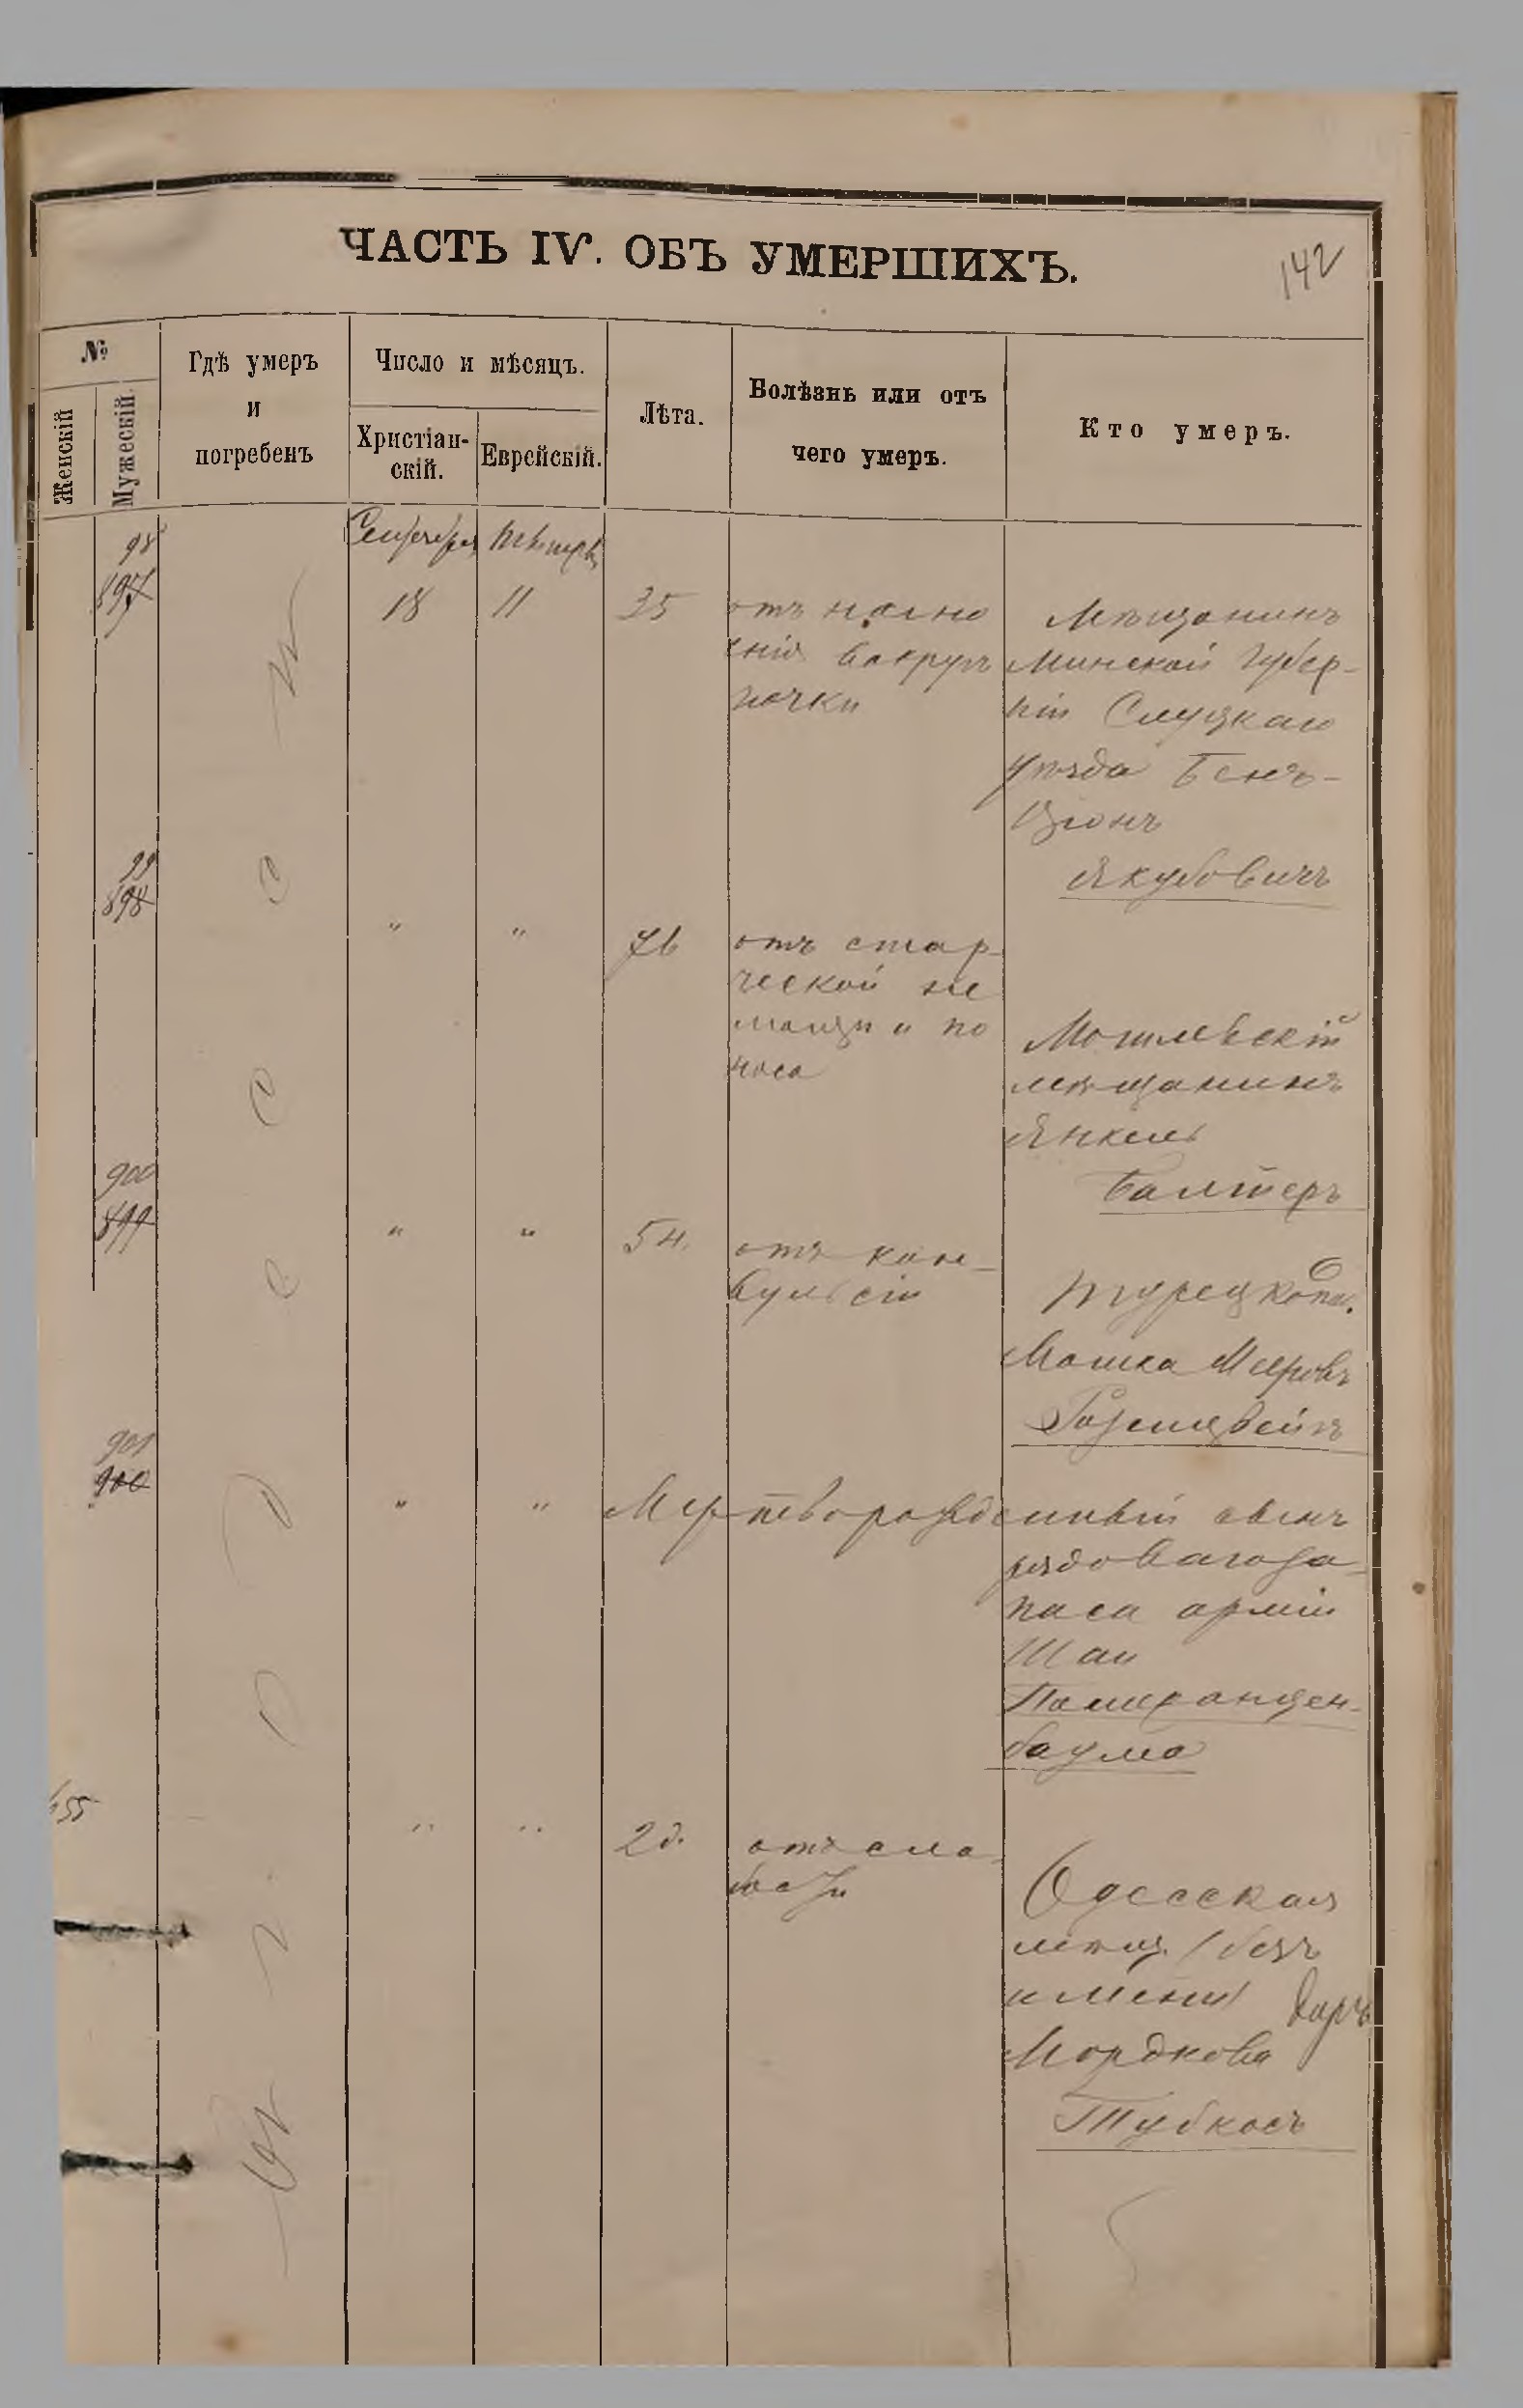 ЧАСТЬ IV. ОБЪ УМЕРШИХЪ.
142
№
Женскій
Мужескій
Гдѣ умеръ
и
погребенъ
Число и мѣсяцъ.
Христіан-
скій.
Еврейскій.
Лѣта.
Болѣзнь или отъ
чего умеръ.
Кто умеръ.
98
897
18
11
35
отъ нагно
енія вокругъ
почки
Мѣщанинъ
Минской Губер-
ніи Слуцкаго
уѣзда Бенъ-
Ціонъ
Якубовичъ
99
898
"
"
76
отъ стар-
ческой не
мощи и по
носа
Могилевскій
мѣщанинъ
Янкель
Балтеръ
900
899
"
"
5 н.
отъ кон-
вульсіи
Турецкопод.
Мошка Меровъ
Розенцвейгъ
901
900
"
"
Мертворожденный сынъ
рядового за-
паса арміи
Шаи
Памеранцен-
баума
655
"
"
2 д.
отъ сла-
бости
Одесская
мѣщ. (безъ
имени) дочь
Мордкова